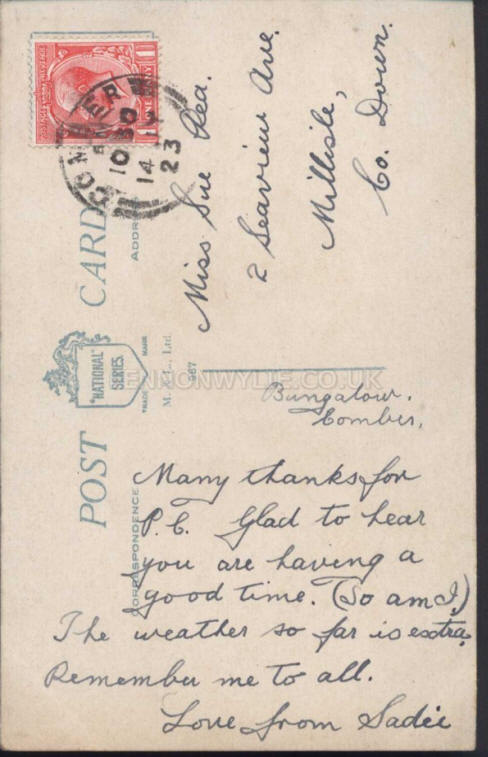 POST CARD
CORRESPONDENCE
ADDRESS
"NATIONAL"
SERIES
TRADE MARK
M. & L., Ltd.
ONE PENNY
COMBER
10 30
14
23
Miss Sue Rea.
2 Seaview Ave.
Millisle,
Co. Down.
LENNONWYLIE.CO.UK
Bungalow.
Comber,
Many thanks for
P.C. Glad to hear
you are having a
good time. (So am I.)
The weather so far is extra.
Remember me to all.
Love from Sadie